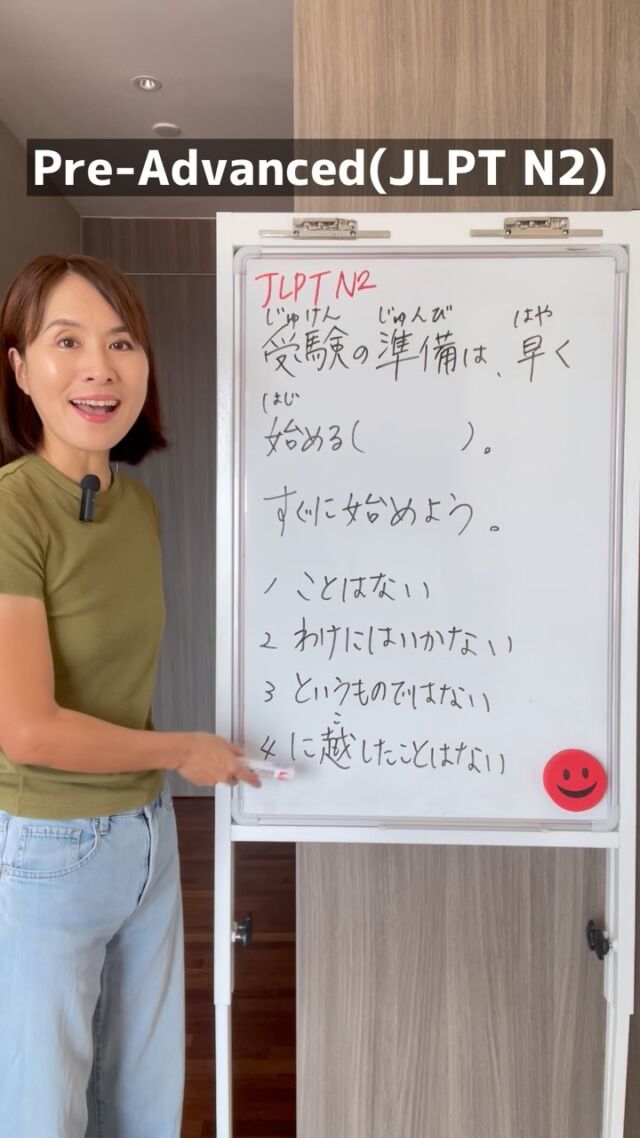 Pre-Advanced(JLPT N2)
JLPT N2
じゅけん じゅんび はや
受験の準備は、早く
はじ
始める( )。
すぐに始めよう。
1 ことはない
2 わけにはいかない
3 というものではない
こ
4 に越したことはない